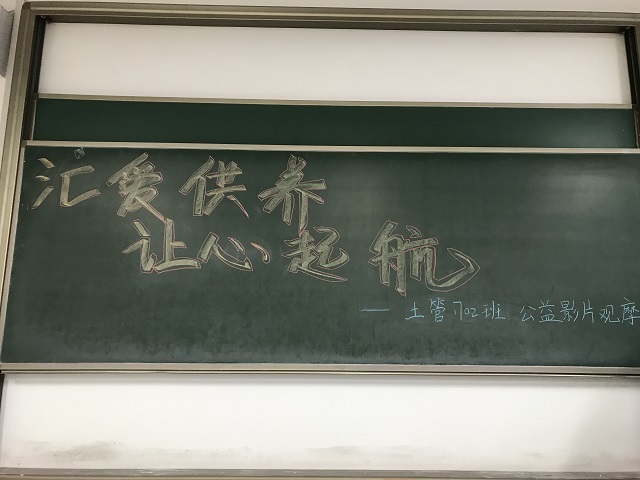 汇爱供养
让心起航
—— 土管1702班 公益影片观摩